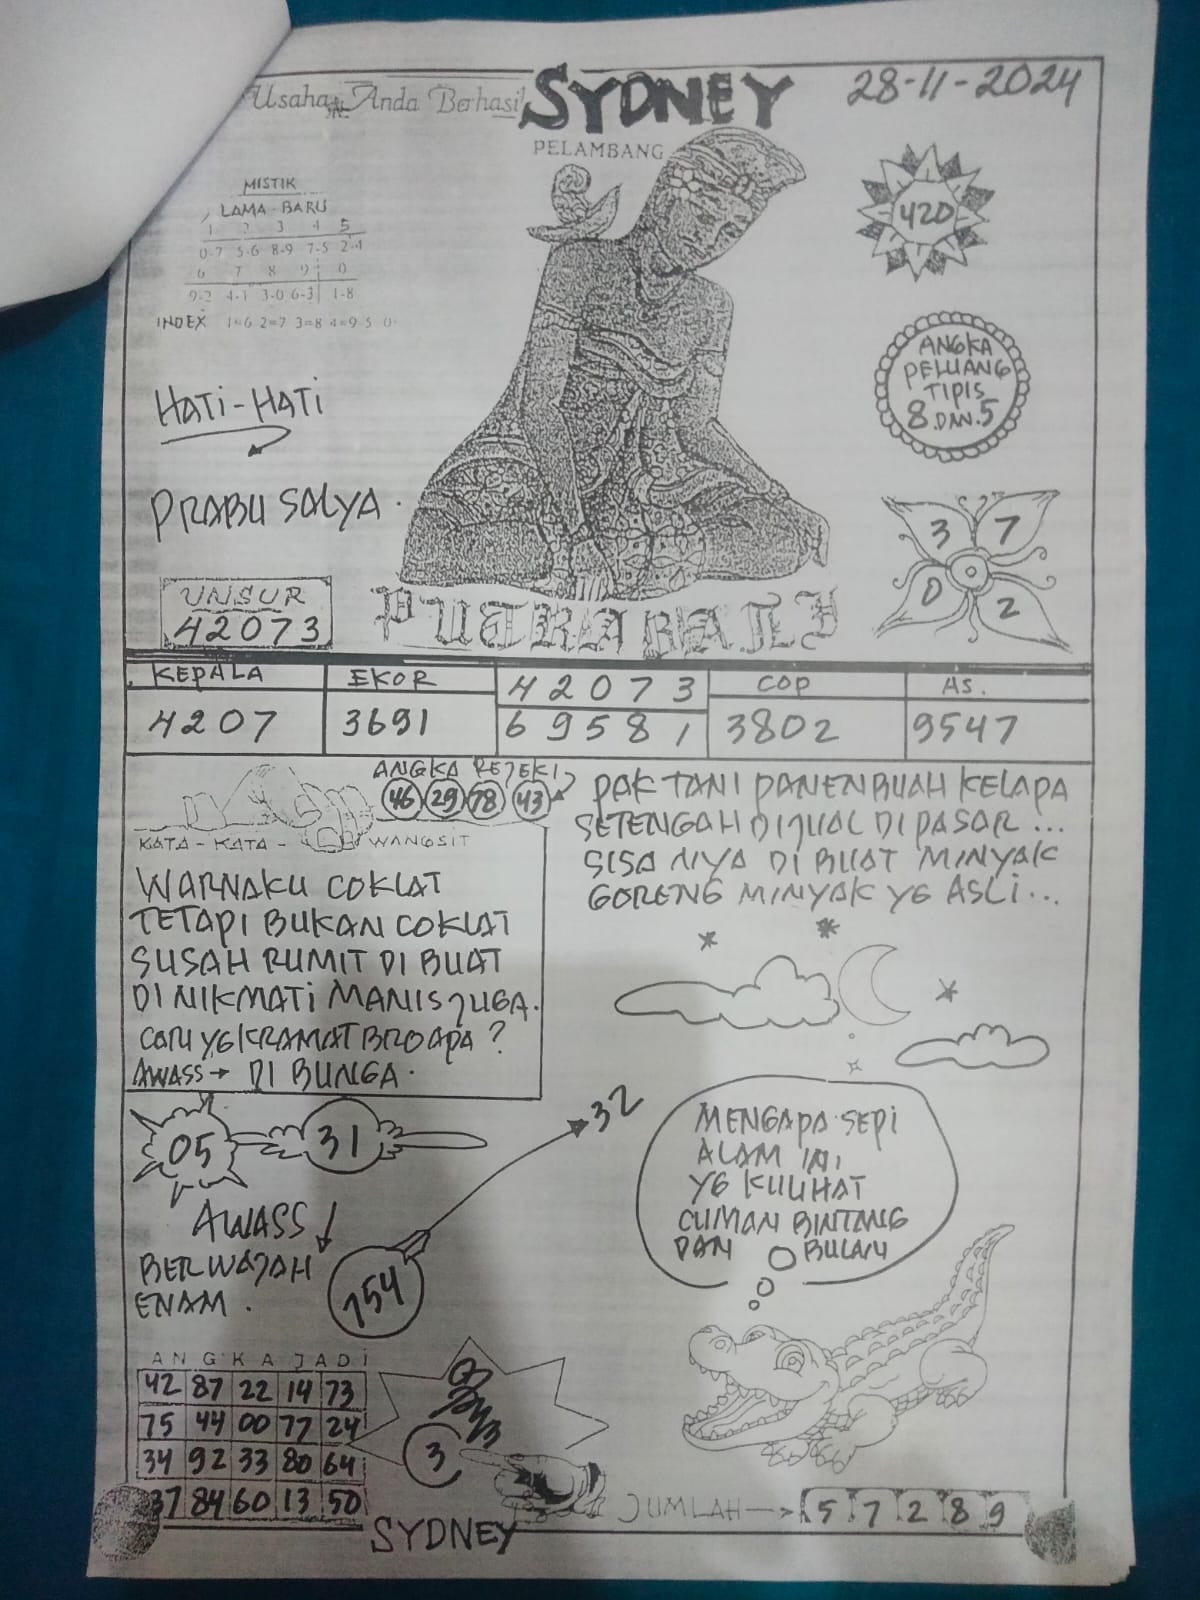 Usaha Anda Berhasil
SYDNEY
28-11-2024
PELAMBANG
MISTIK
LAMA - BARU
1 2 3 4 5
0-7 5-6 8-9 7-5 2-4
6 7 8 9 0
9-2 4-1 3-0 6-3 1-8
INDEX 1=6 2=7 3=8 4=9 5 0
420
HATI-HATI
ANGKA
PELUANG
TIPIS
8.DAN.5
PRABU SALYA.
3 7
0 2
UNSUR
42073
PUTRA BALI
KEPALA EKOR 42073 COP AS.
4207 3691 69581 3802 9547
ANGKA REJEKI
46 29 78 43
KATA-KATA- WANGSIT
PAK TANI PANEN BUAH KELAPA
SETENGAH DIJUAL DI PASAR ...
SISA NYA DI BUAT MINYAK
GORENG MINYAK YG ASLI ...
WARNAKU COKLAT
TETAPI BUKAN COKLAT
SUSAH RUMIT DI BUAT
DI NIKMATI MANIS JUGA.
CARI YG KRAMAT BRO APA ?
AWASS → DI BUNGA.
05 31
32
AWASS
BERWAJAH
ENAM.
754
MENGAPA SEPI
ALAM INI
YG KULIHAT
CUMAN BINTANG
DAN BULAN
ANGKA JADI
42 87 22 14 73
75 44 00 77 24
34 92 33 80 64
37 84 60 13 50
3
SYDNEY
JUMLAH → 5 7 2 8 9